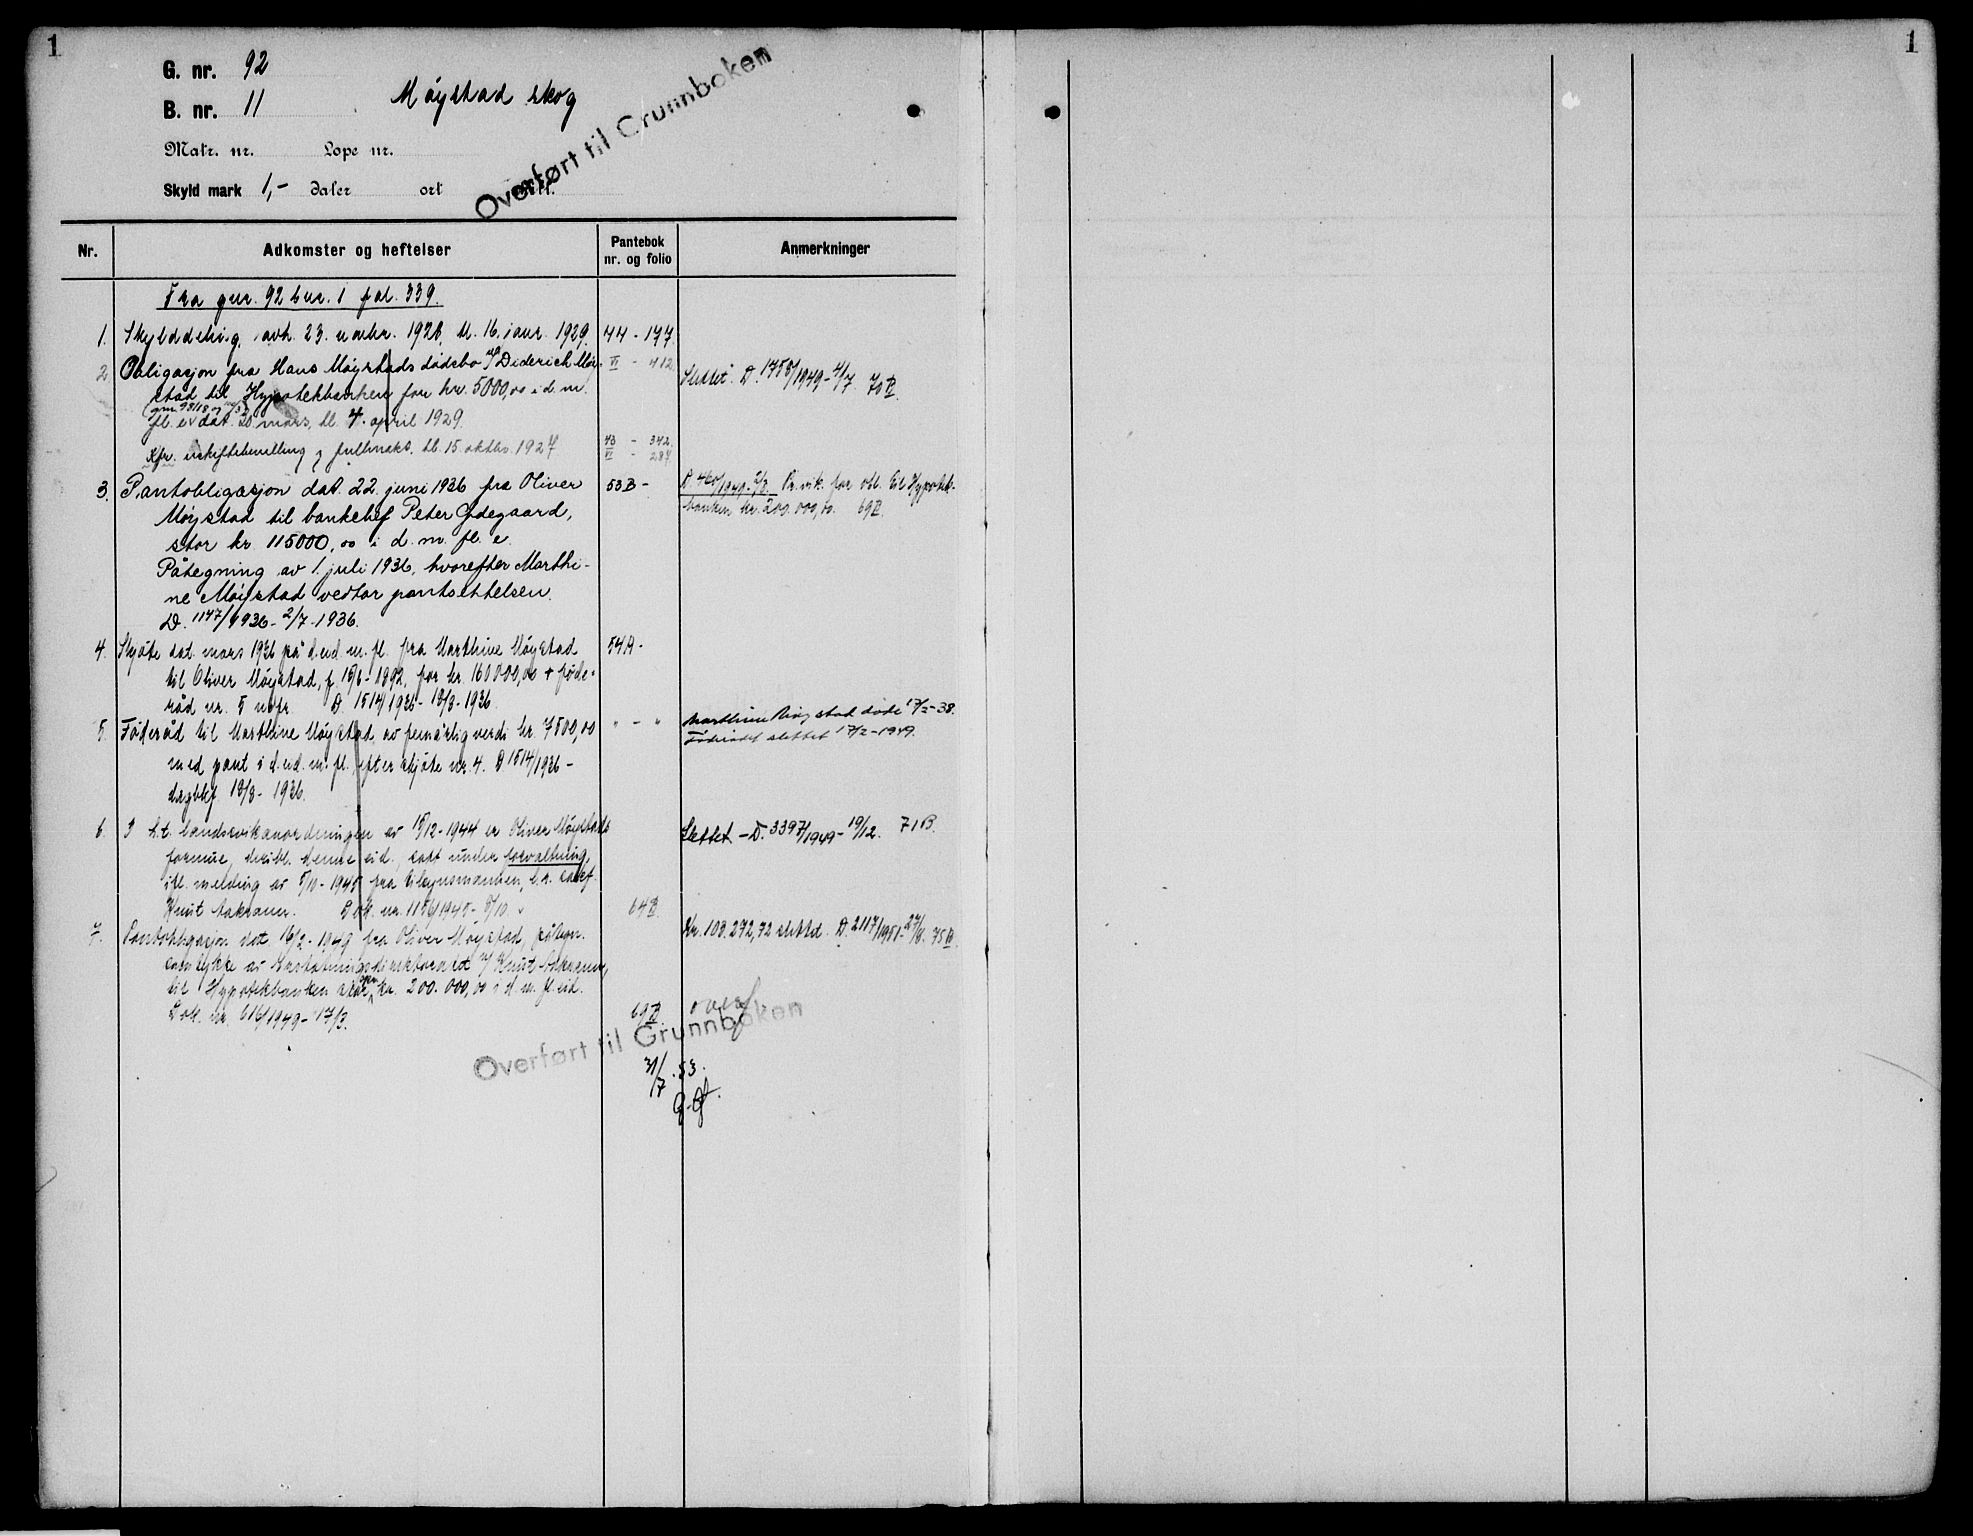 1
1
G. nr. 92
B. nr. 11
Møystad skog
Matr. nr. Løpe nr.
Skyld mark 1,- daler ort
Overført til Grunnboken
Nr. Adkomster og heftelser Pantebok nr. og folio Anmerkninger
Fra gnr. 92 bnr. 1 fol. 339.
1. Skylddeling, avh. 23. novbr. 1928, tl. 16. janr. 1929. 44 - 197.
2. Obligasjon fra Hans Møystads dødsbo v/ Diderich Møy- VI - 412
stad til Hypotekbanken for kr. 5000,00 i d. m.
fl. e. dat. 20 mars, tl. 4. april 1929.
Slettet. D. 1758/1949 - 4/7 70B.
Kfr. uskiftebevilling og fullmakt. tl. 15. oktbr. 1927 43 - 342.
VI - 287.
3. Pantobligasjon dat. 22. juni 1936 fra Oliver 53B -
Møystad til bankchef Peter Ødegaard,
stor kr. 115000,00 i d. m. fl. e.
Påtegning av 1. juli 1936, hvorefter Marthi-
ne Møystad vedtar pantsettelsen.
D. 1147/1936 - 2/7-1936.
D. 460/1949 - 2/3. Pr.vik. for obl. til Hypotek-
banken kr. 200.000,00. 69B.
4. Skjøte dat. mars 1936 på d. eid. m. fl. fra Marthine Møystad 54A -
til Oliver Møystad, f. 18/6-1892, for kr. 160000,00 + føde-
råd nr. 5 nefr. D 1514/1936 - 18/8-1936
5. Føderåd til Marthine Møystad, av femårlig verdi kr. 7500,00 " - "
med pant i d. eid. m. fl., efter skjøte nr. 4. D 1514/1936 -
dagbkf. 18/8-1936.
Marthine Møystad døde 17/2-38.
Føderådet slettet 17/2-1949.
6. I h.t. landssvikanordningen av 15/12-1944 er Oliver Møystads
formue, deribl. denne eid., satt under forvaltning,
ifl. melding av 5/10-1945 fra tilsynsmannen,
Knut Aakrann. Dok. nr. 1156/1945 - 8/10. 64B
Slettet - D. 3397/1949 - 19/12. 71B.
7. Pantobligasjon dat. 16/2-1949 fra Oliver Møystad, påtegn.
samtykke av Erstatningsdirektoratet v/ Knut Aakrann,
til Hypotekbanken stor kr. 200.000,00 i d. m. fl. eid.
Dok. nr. 616/1949 - 17/3. 69B.
Kr. 103.272,72 slettet. D. 2117/1951 - 27/8. 75B.
overf
Overført til Grunnboken
31/7. 53.